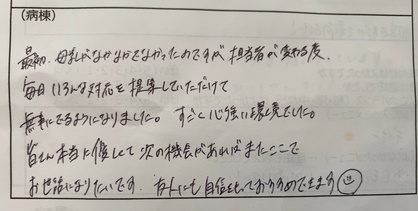 (病棟)
最初、母乳がなかなかでなかったのですが担当者が変わる度、
毎日いろんな対応を提案していただけて
無事にでるようになりました。すごく心強い環境でした。
皆さん本当に優しくて次の機会があればまたここで
お世話になりたいです。友人にも自信もっておすすめできます